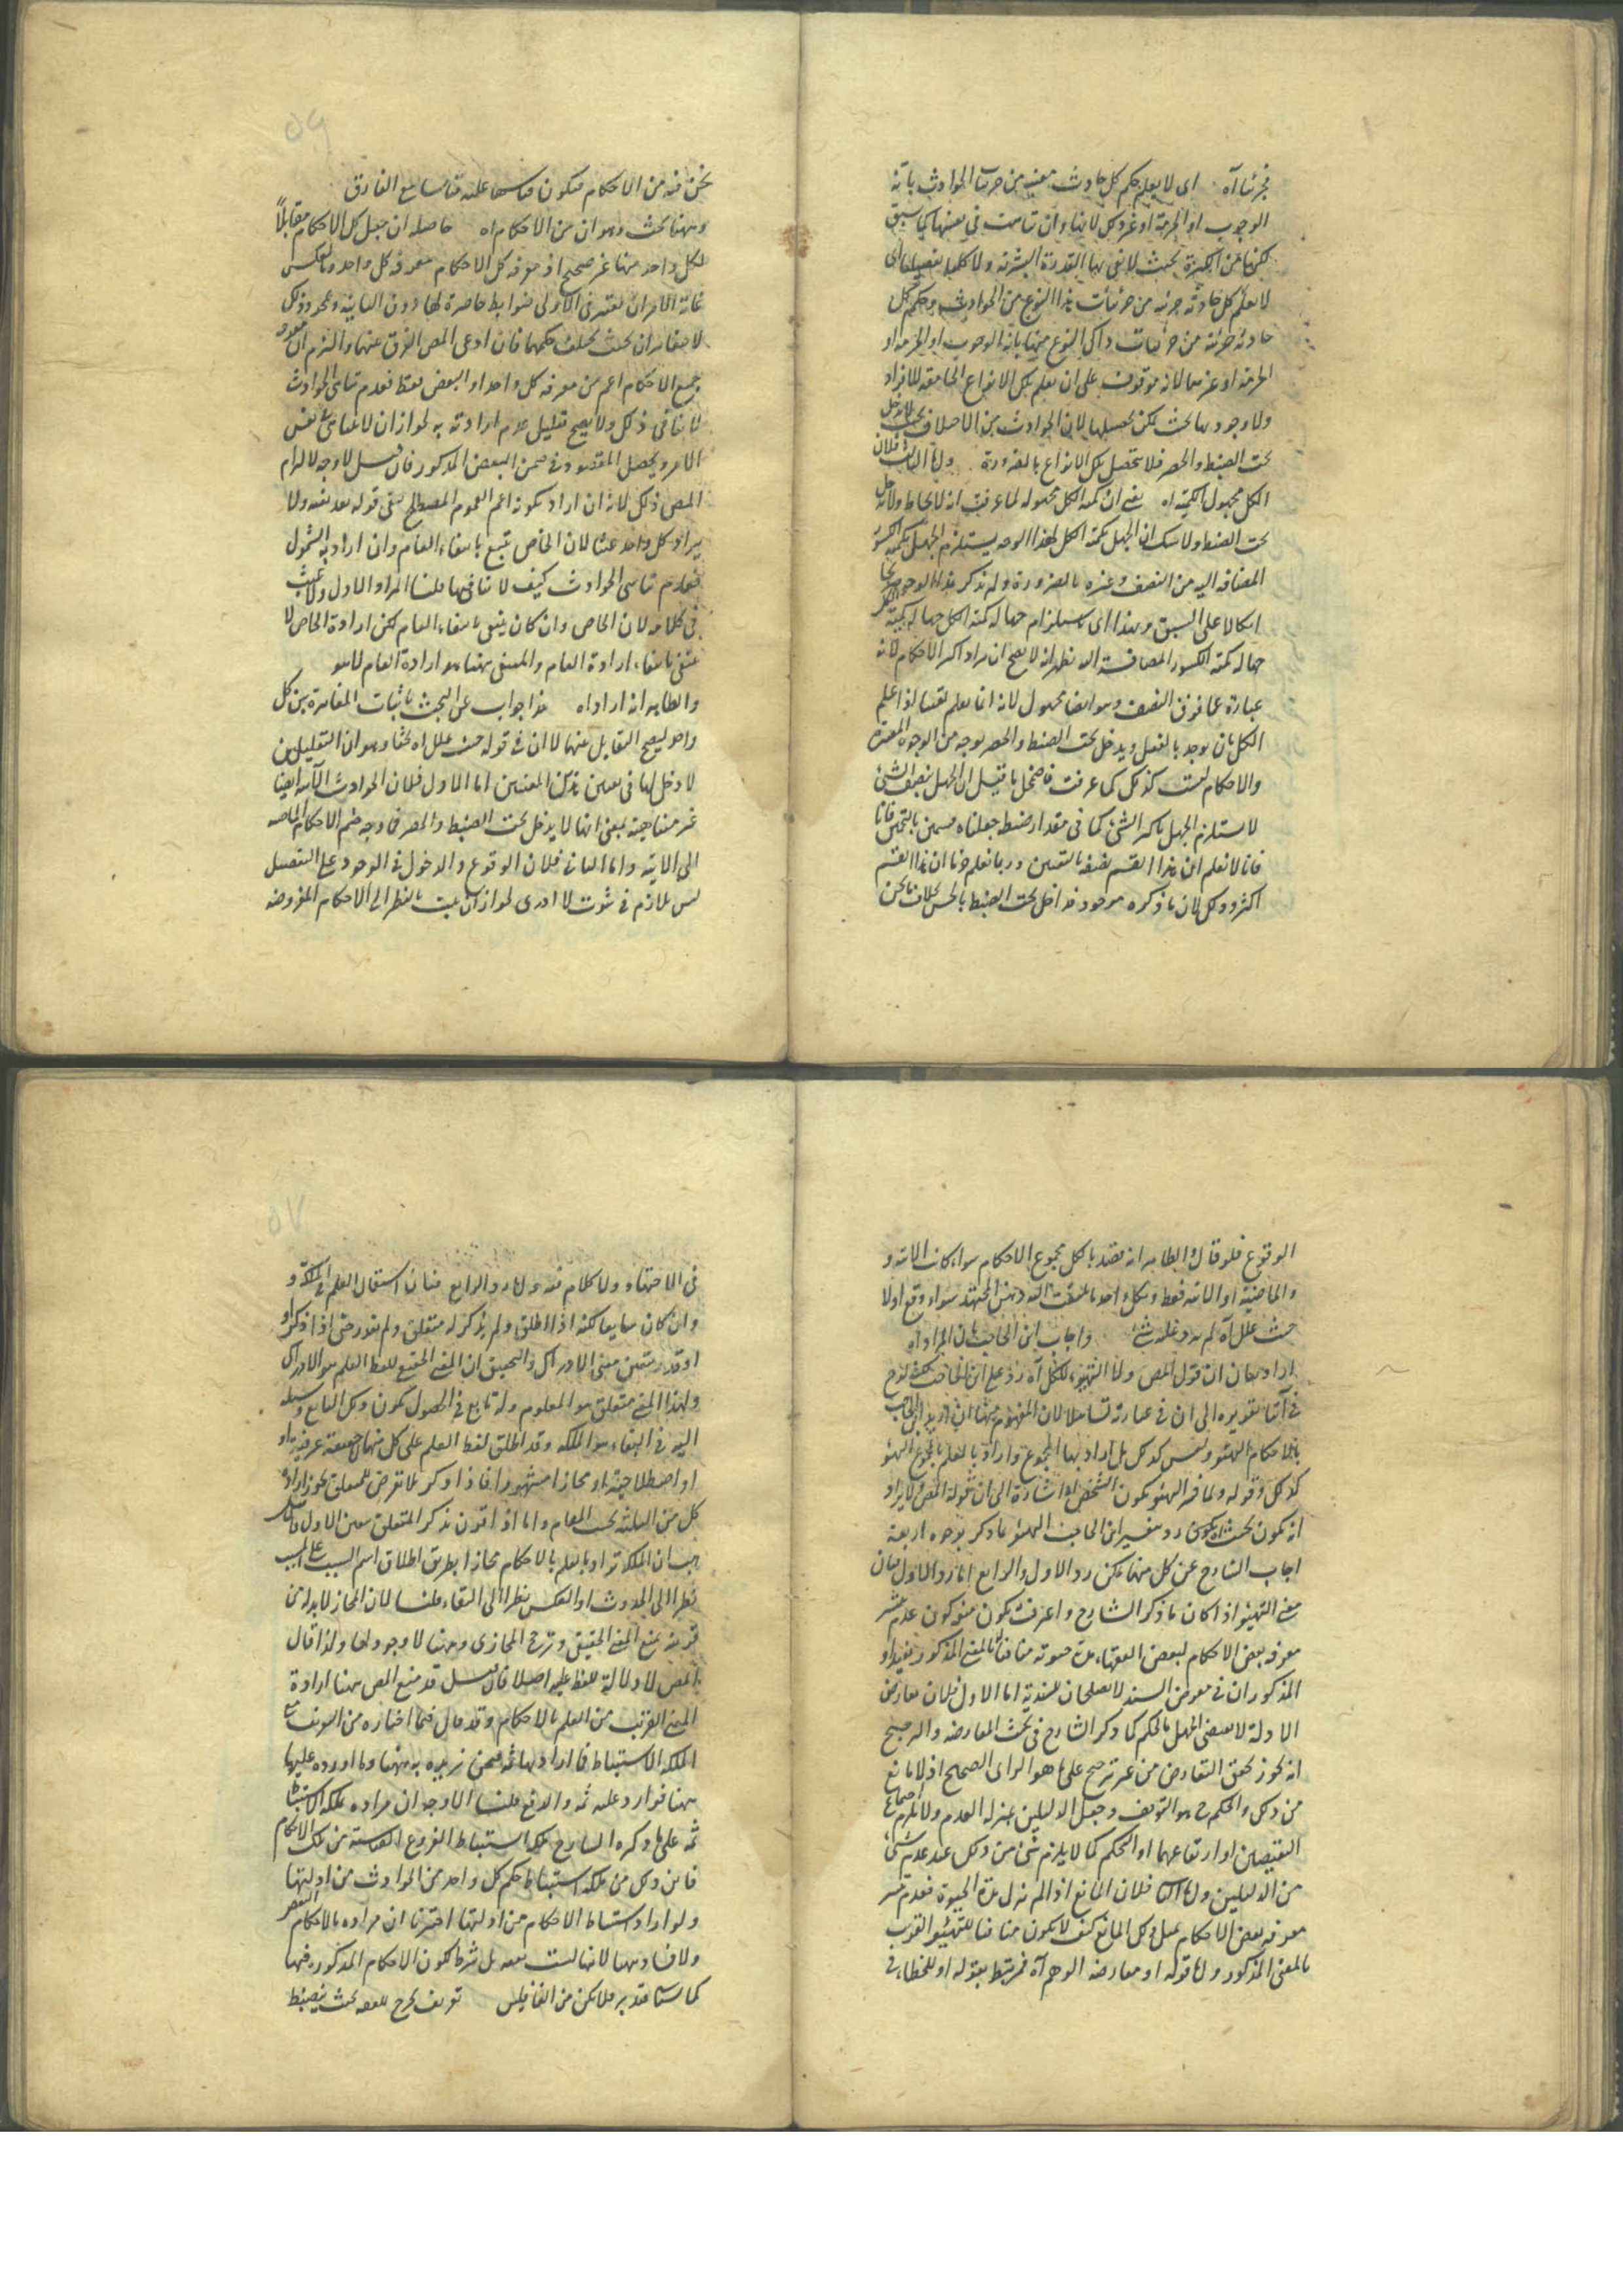 فجزئيا آه اى لا يعلم حكم كل حادث معين من جزئيات الحوادث بانه
الوجوب او الحرمة او غير ذلك لانها وان تناهت فى نفسها كما سبق
لكنها من الكثرة بحيث لا تفى بها القدرة البشرية ولا كليا تفصيليا اى
لا يعلم كل حادثة جزئية من جزئيات هذا النوع من الحوادث وحكم كل
حادثة جزئية من جزئيات ذاك النوع منها بانه الوجوب او الحرمة او
الحرمة او غيرهما لانه موقوف على ان يعلم تلك الانواع الجامعة للافراد
ولا وجود لها بحيث يمكن تحصيلها لان الحوادث من الاختلاف بحيث لا يدخل
تحت الضبط والحصر فلا تحصل تلك الانواع بالضرورة واما الثالث فلان
الكل مجهول الكمية آه يعنى ان كمية الكل مجهولة لما عرفت انه لا يحاط ولا يدخل
تحت الضبط ولا شك ان الجهل بكمية الكل بهذا الوجه يستلزم الجهل بكمية الكسور
المضافة اليه من النصف وغيره بالضرورة ولم يذكر هذا الوجه صريحا
اتكالا على السبق وبهذا اى استلزام جهالة كمية الكل جهالة كمية
جهالة كمية الكسور المضافة اليه يظهر انه لا يصح ان يراد اكثر الاحكام لانه
عبارة عما فوق النصف وهو ايضا مجهول لانه انما يعلم يقينا اذا علم
الكل بان يوجد بالفعل ويدخل تحت الضبط والحصر بوجه من الوجوه المعتبرة
والاحكام ليست كذلك كما عرفت فاضمحل ما قيل ان الجهل بنصف الشئ
لا يستلزم الجهل باكثر الشئ كما فى مقدار ضبط جعلناه قسمين بالتخمين فانا
فانا لا نعلم ان هذا القسم نصفه بالتعيين وربما نعلم جزما ان هذا القسم
اكثر وذلك لان ما ذكره موجود داخل تحت الضبط بالحس بخلاف ما نحن
نحن فيه من الاحكام فيكون قياسها عليه قياسا مع الفارق
وههنا بحث وهو ان من الاحكام آه حاصله ان جعل كل الاحكام مقابلا
لكل واحد منها غير صحيح اذ معرفة كل الاحكام معرفة كل واحد وبالعكس
غاية الامر ان يعتبر فى الاولى ضوابط حاصرة لها دون الثانية ومجرد ذلك
لا يتغايران بحيث يختلف حكمهما فان ادعى المص الفرق بينهما والتزم ان معرفة
جميع الاحكام اعم من معرفة كل واحد او البعض فقط فعدم تناهى الحوادث
لا ينافى ذلك ولا يصح تعليل عدم ارادته به لجواز ان لا يتناهى فى نفس
الامر ويحصل المقصود فى ضمن البعض المذكور فان قيل لا وجه لالزام
المص ذلك لانه ان اراد بكونه اعم العموم المصطلح يبقى قوله بعد نفيه ولا
يراد كل واحد عبثا لان الخاص تبع بانتفاء العام وان اراد به الشمول
فعدم تناهى الحوادث كيف لا ينافيها قلنا المراد الاول ولا عبث
فى كلامه لان الخاص وان كان ينتفى بانتفاء العام لكن ارادة الخاص لا
ينتفى بانتفاء ارادة العام والمنفى ههنا هو ارادة العام لا هو
والظاهر انه اراد آه هذا جواب عن البحث باثبات المغايرة بين كل
واحد ليصح التقابل بينهما الا ان فى قوله حيث علل آه بحثا وهو ان التعليلين
لا دخل لهما فى تعيين هذين المعنيين اما الاول فلان الحوادث الآتية ايضا
غير متناهية بمعنى انها لا يدخل تحت الضبط والحصر فما وجه ضم الاحكام الماضية
الى الآتية واما الثانى فلان الوقوع والدخول فى الوجود على التفصيل
ليس بلازم فى ثبوت لا ادرى لجواز ان يثبت بالنظر الى الاحكام المفروضة
الوقوع فلو قال والظاهر انه يقصد بالكل مجموع الاحكام سواء كانت الآتية و
والماضية او الآتية فقط وبكل واحد ما يلتفت اليه ذهن المجتهد سواء وقع اولا
حيث علل آه لم يرد عليه شئ واجاب ابن الحاجب بان المراد آه
اراد بيان ان قول المص واما التهيؤ لكل آه رد على ابن الحاجب
فى اثناء تقريره الى ان فى عبارته تساهلا لان المفهوم منها ان اراد ابن الحاجب
بالاحكام التهيؤ وليس كذلك بل اراد بها المجموع واراد بالعلم بالمجموع التهيؤ
لذلك وقوله ولما فسر التهيؤ بكون الشخص آه اشارة الى ان قول المص ولا يراد
انه يكون بحيث آه يكون رد تفسير ابن الحاجب التهيؤ بما ذكر بوجوه اربعة
اجاب الشارح عن كل منها لكن رد الاول والرابع اما رد الاول فبان
معنى التهيؤ اذا كان ما ذكر الشارح واعترف بكون منه كون عدم تيسر
معرفة بعض الاحكام لبعض الفقهاء مدة حيوته منافيا بالمعنى المذكور بقيد او
المذكوران فى معرض السند لا يصلحان للسندية اما الاول فلان تعارض
الادلة لا يقتضى الجهل بالحكم كما ذكر الشارح فى بحث المعارضة والترجيح
انه يجوز تحقق التعارض من غير ترجيح على ما هو الراى الصحيح اذ لا مانع
من ذلك والحكم ح هو التوقف وجعل الدليلين بمنزلة العدم ولا يلزم اجتماع
النقيضين او ارتفاعهما او التحكم كما لا يلزم شئ من ذلك عند عدم شئ
من الدليلين واما الثانى فلان المانع اذا لم يزل مدة الحيوة فعدم تيسر
معرفة بعض الاحكام بمثل ذلك المانع كيف لا يكون منافيا للتهيؤ القريب
بالمعنى المذكور واما قوله او معارضة الوهم آه فمرتبط بقوله او للخطاء فى
فى الاجتهاد ولا كلام فيه واما رد الرابع فبان استعمال العلم فى الملكة و
وان كان شايعا لكنه اذا اطلق ولم يذكر له متعلق ولم يقدر حتى اذا ذكر او
او قدر يتعين معنى الادراك والتحقيق ان المعنى الحقيقى للفظ العلم هو الادراك
ولهذا المعنى متعلق هو المعلوم وله تابع فى الحصول يكون ذلك التابع وسيلة
اليه فى البقاء هو الملكة وقد اطلق لفظ العلم على كل منها حقيقة عرفية او
او اصطلاحية او مجازا مشهورا فاذا ذكر بلا تعرض للمتعلق يجوز ارادة
كل من الثلثة بحسب المقام واما اذا اقترن بذكر المتعلق تعين الاول فان قيل
يجب ان الملكة تراد بالعلم بالاحكام مجازا بطريق اطلاق اسم السبب على المسبب
نظرا الى الحدوث او العكس نظرا الى البقاء قلنا لان المجاز لا بد له من
قرينة تمنع المعنى الحقيقى وترجح المجازى وههنا لا وجود لها ولذا قال
المص لا دلالة للفظ عليه اصلا فان قيل قد منع المص ههنا ارادة
المعنى القريب من العلم بالاحكام وقد قال فيما اختاره من التعريف مع
ملكة الاستنباط فما اراد بها ثمه فمن يريده به ههنا وما اورده عليها
ههنا فوارد عليه ثمه والدفع قلنا الاوجه ان مراده بملكة الاستنباط
ثمه على ما ذكره الشارح ملكة استنباط الفروع القياسية من تلك الاحكام
فاين ذلك من ملكة استنباط حكم كل واحد من الحوادث من ادلتها
ولو اراد استنباط الاحكام من ادلتها اخترنا ان مراده بالاحكام البعض
ولا فساد ههنا لانها ليست بعد بل شرط لكون الاحكام المذكورة فقها
كما سيأتى فتدبر فلا تكن من الغافلين تعريف يخرج للفقه بحيث ينضبط